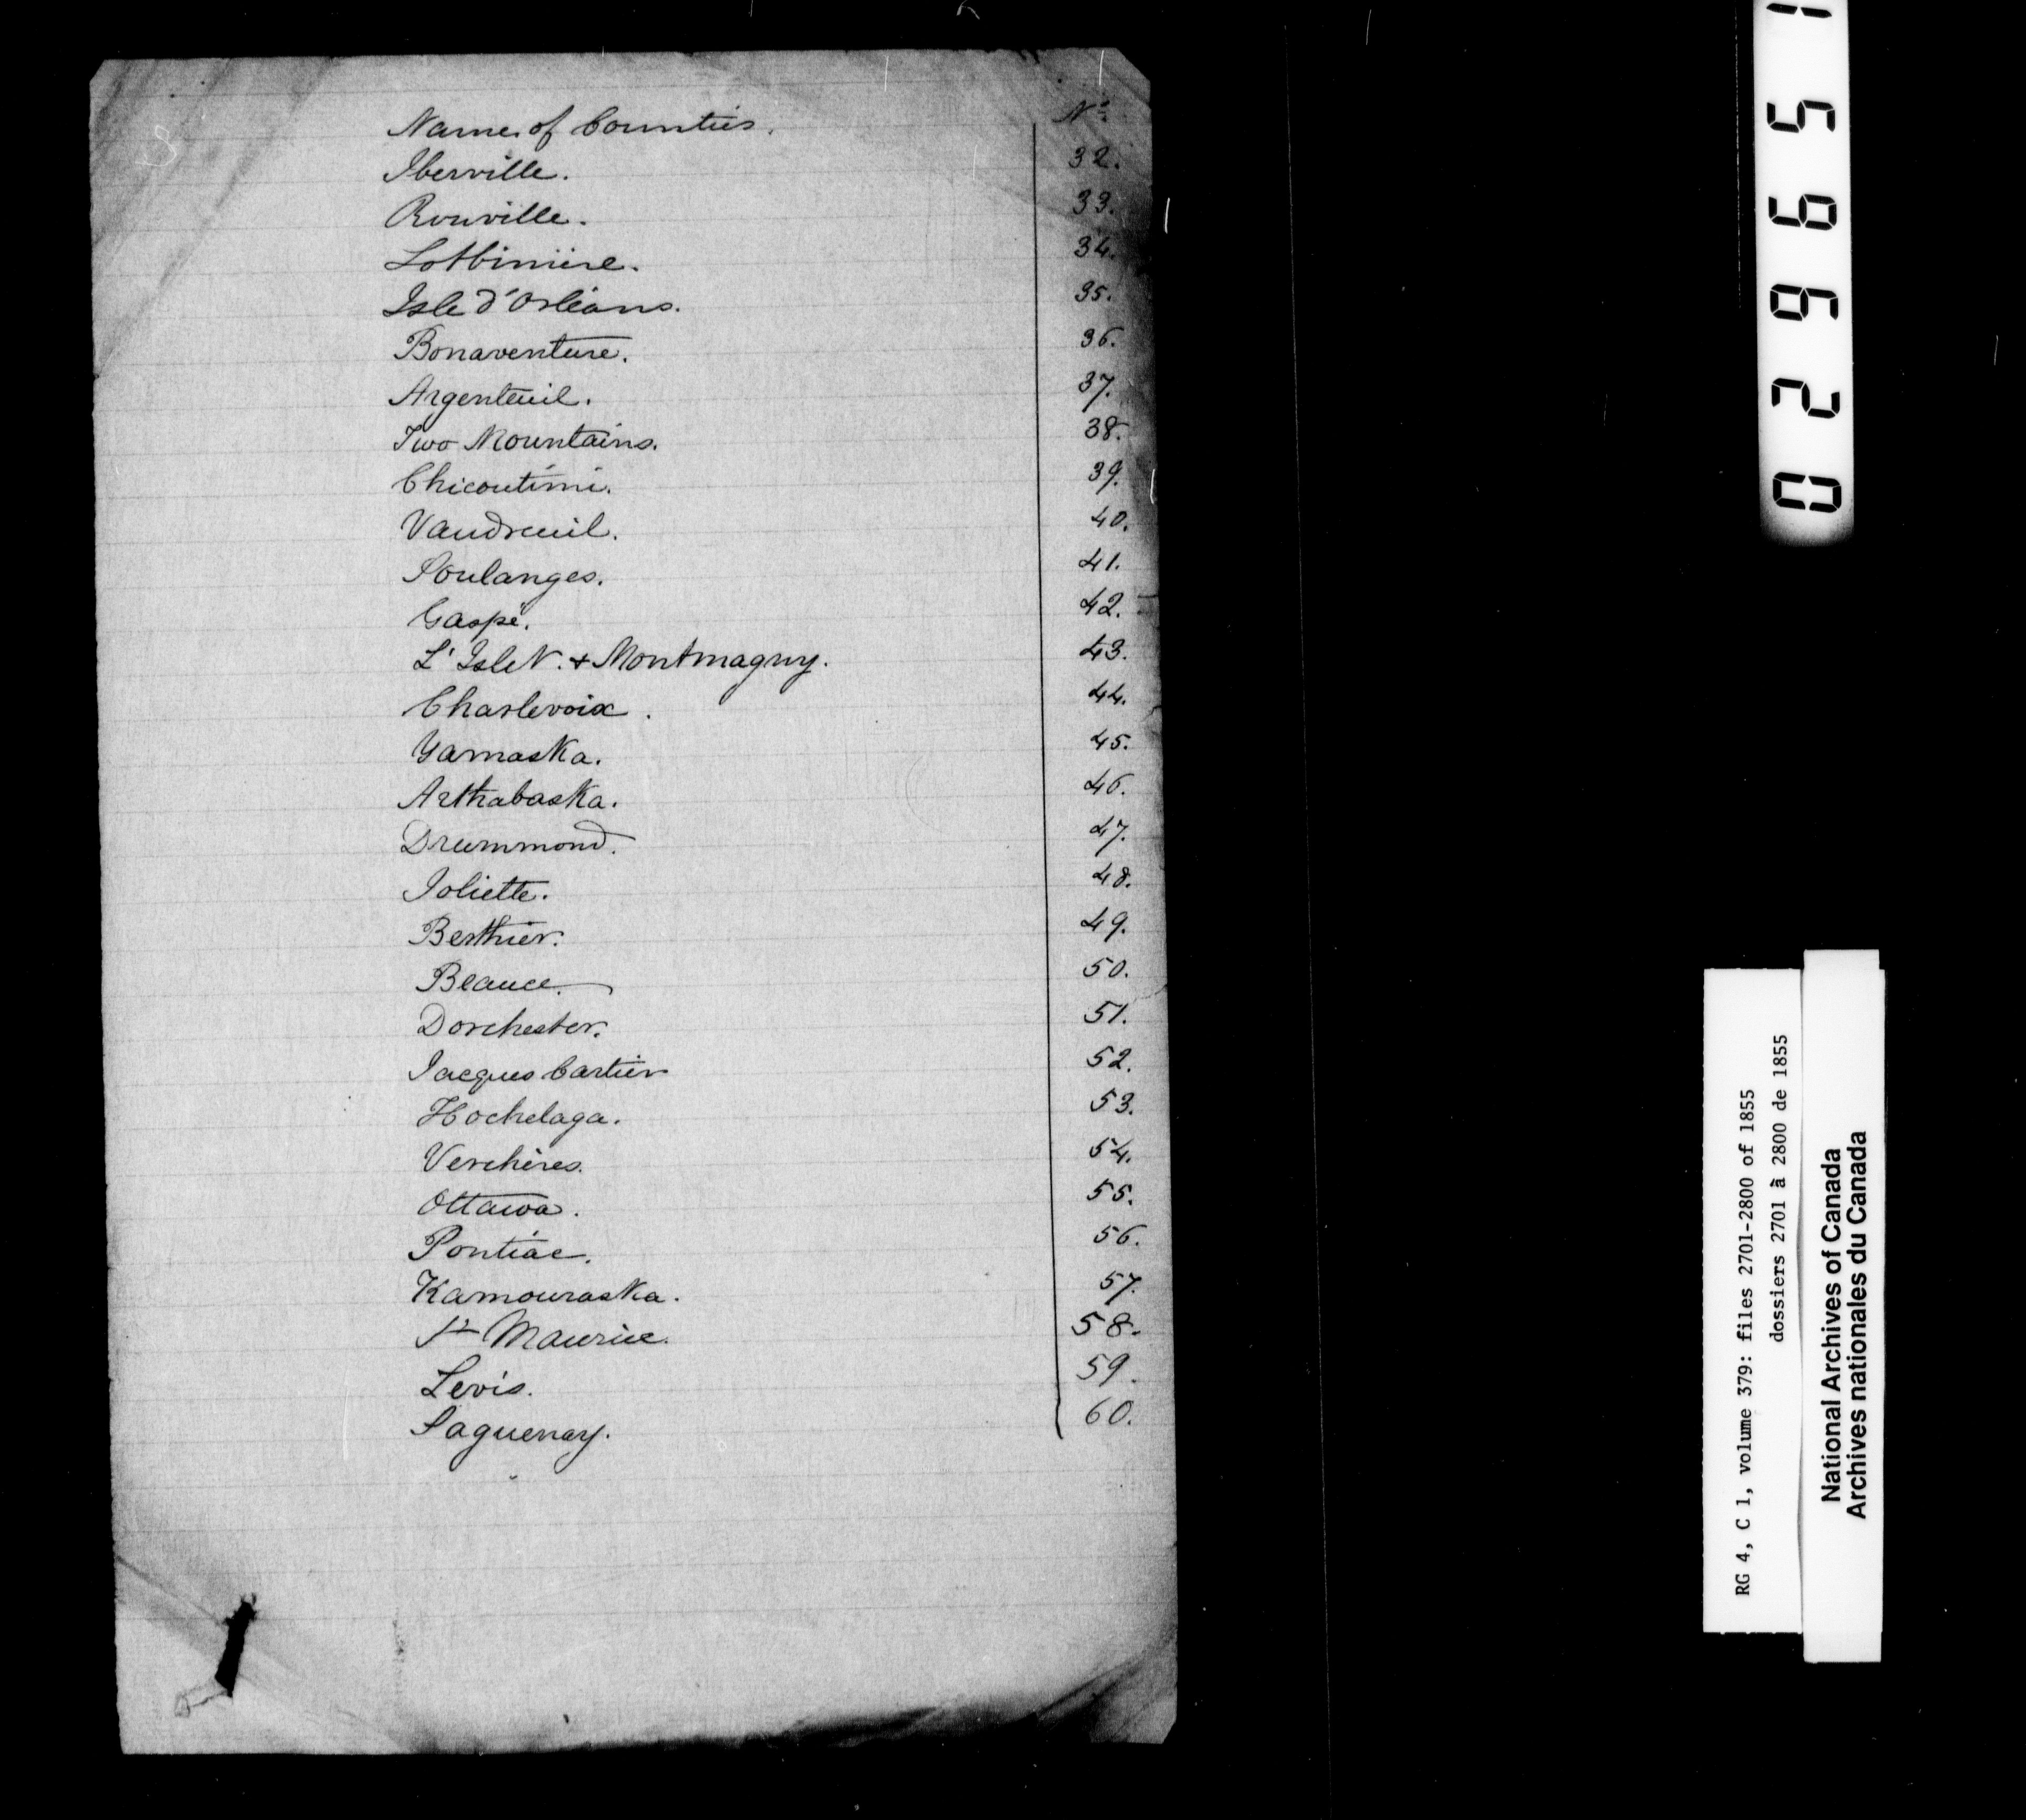 Name of Counties. No
Iberville. 32.
Rouville. 33.
Lotbinière. 34.
Isle d'Orléans. 35.
Bonaventure. 36.
Argenteuil. 37.
Two Mountains. 38.
Chicoutimi. 39.
Vaudreuil. 40.
Soulanges. 41.
Gaspé. 42.
L'Islet. & Montmagny. 43.
Charlevoix. 44.
Yamaska. 45.
Arthabaska. 46.
Drummond. 47.
Joliette. 48.
Berthier. 49.
Beauce. 50.
Dorchester. 51.
Jacques Cartier 52.
Hochelaga. 53.
Verchères. 54.
Ottawa. 55.
Pontiac. 56.
Kamouraska. 57.
St Maurice. 58.
Levis. 59.
Saguenay. 60.
029651
RG 4, C 1, volume 379: files 2701-2800 of 1855
dossiers 2701 à 2800 de 1855
National Archives of Canada
Archives nationales du Canada